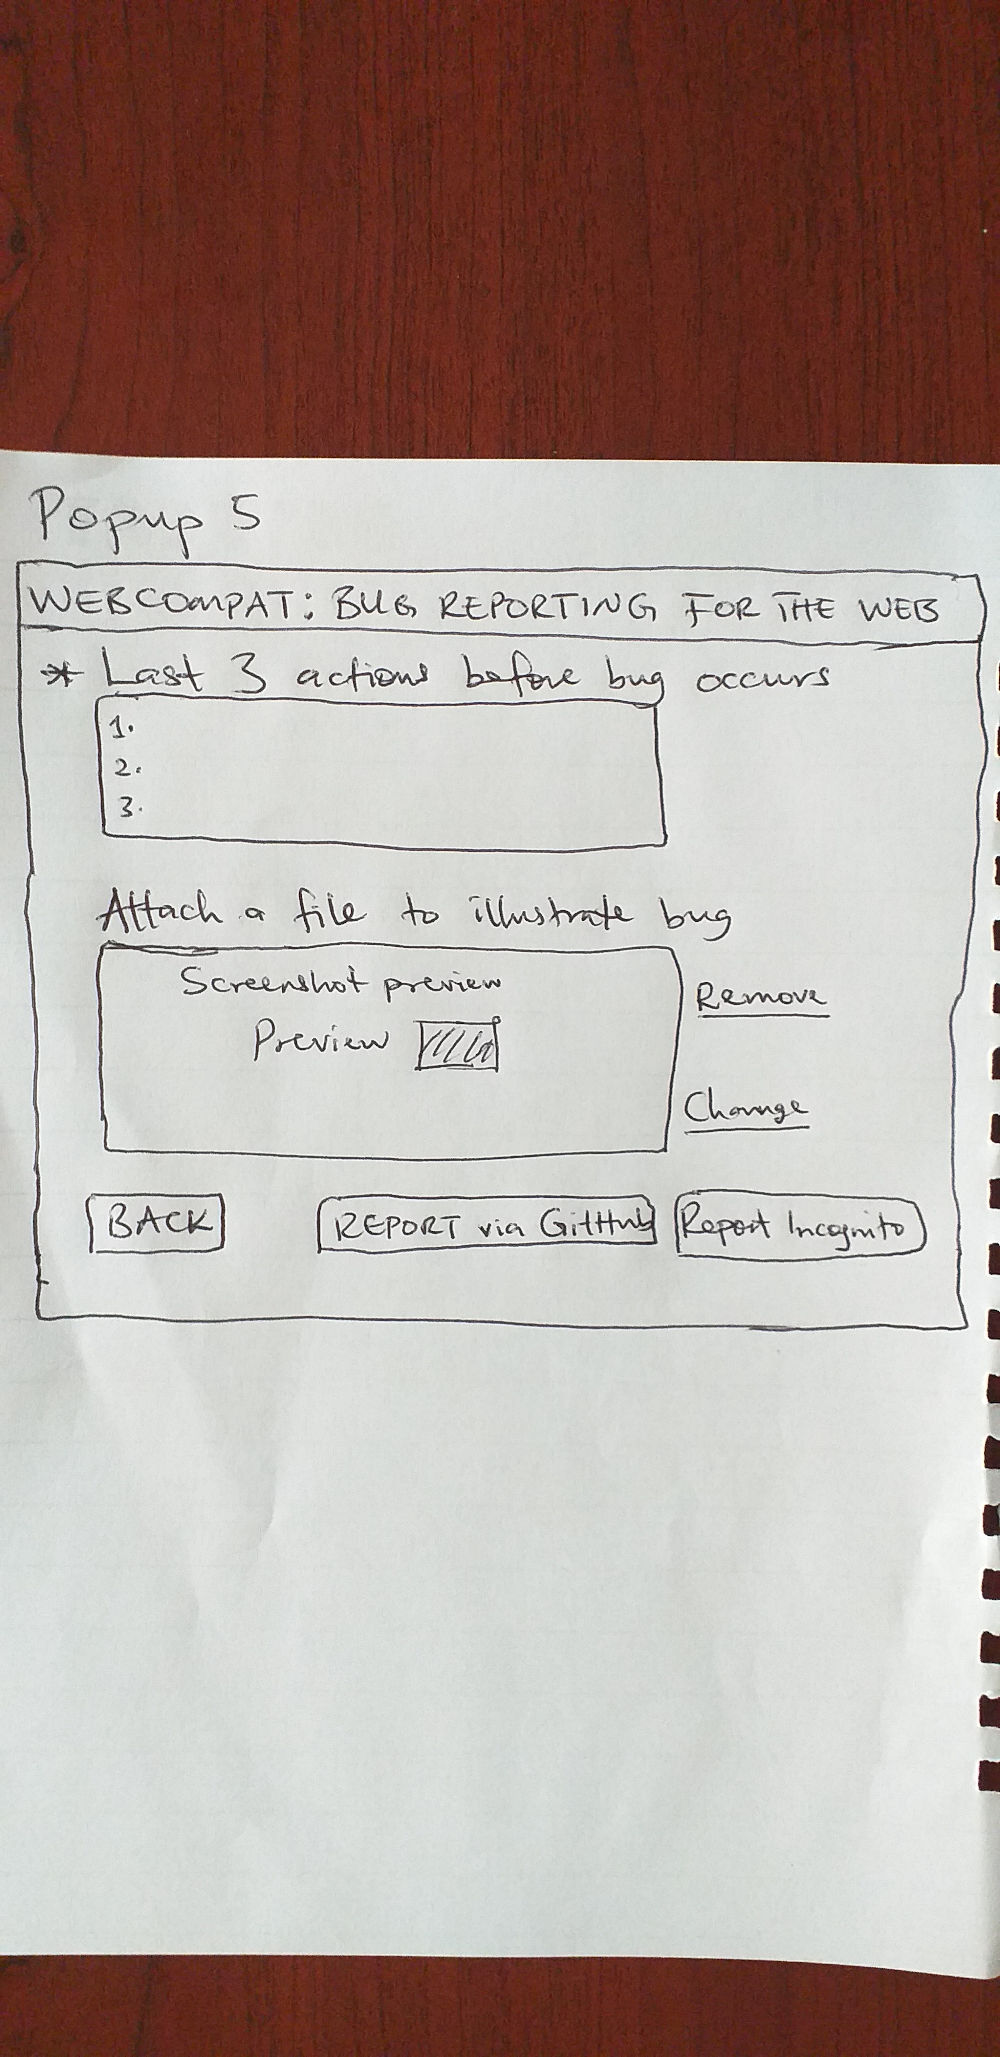 Popup 5
WEBCOMPAT: BUG REPORTING FOR THE WEB
* Last 3 actions before bug occurs
1.
2.
3.
Attach a file to illustrate bug
Screenshot preview
Preview
Remove
Change
BACK
REPORT via GitHub
Report Incognito